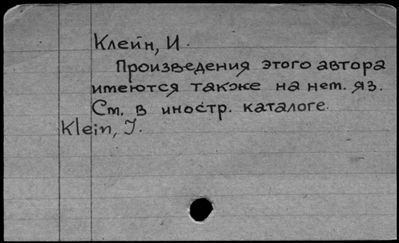 Клейн, И.
Произведения этого автора
имеются также на нем. яз.
См. в иностр. каталоге.
Klein, J.